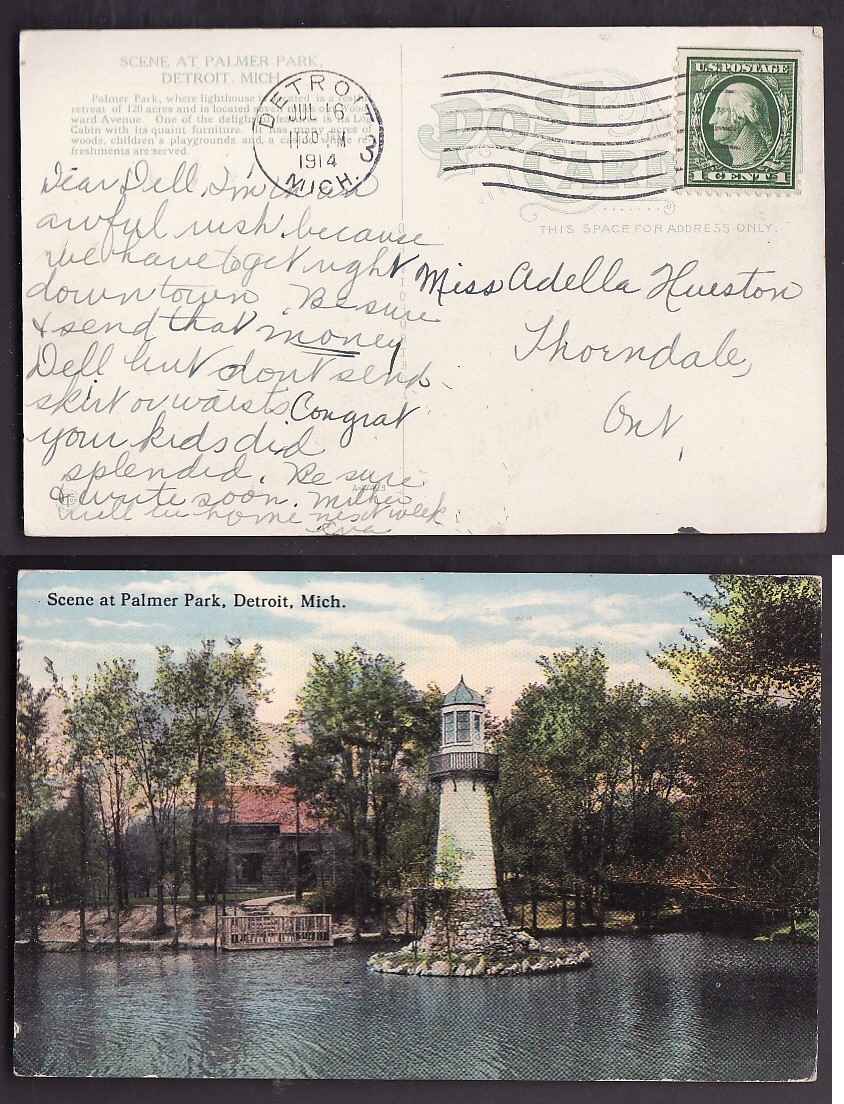 SCENE AT PALMER PARK,
DETROIT, MICH.
Palmer Park, where lighthouse is located is a
retreat of 120 acres and is located seven miles out Wood-
ward Avenue. One of the delightful features is its Log
Cabin with its quaint furniture. It has many acres of
woods, children's playgrounds and a casino where re-
freshments are served.
DETROIT 3
JUL 6
1130 M
1914
MICH.
POST CARD
U.S. POSTAGE
1 CENT 1
THIS SPACE FOR ADDRESS ONLY.
Dear Dell, I'm in an
awful rush because
we have to get right
down town. Be sure
& send that money
Dell but dont send
skirt or waists Congrat
your kids did
splendid. Be sure
& write soon. Mother
will be home next week
Eva
Miss Adella Hueston
Thorndale,
Ont,
Scene at Palmer Park, Detroit, Mich.